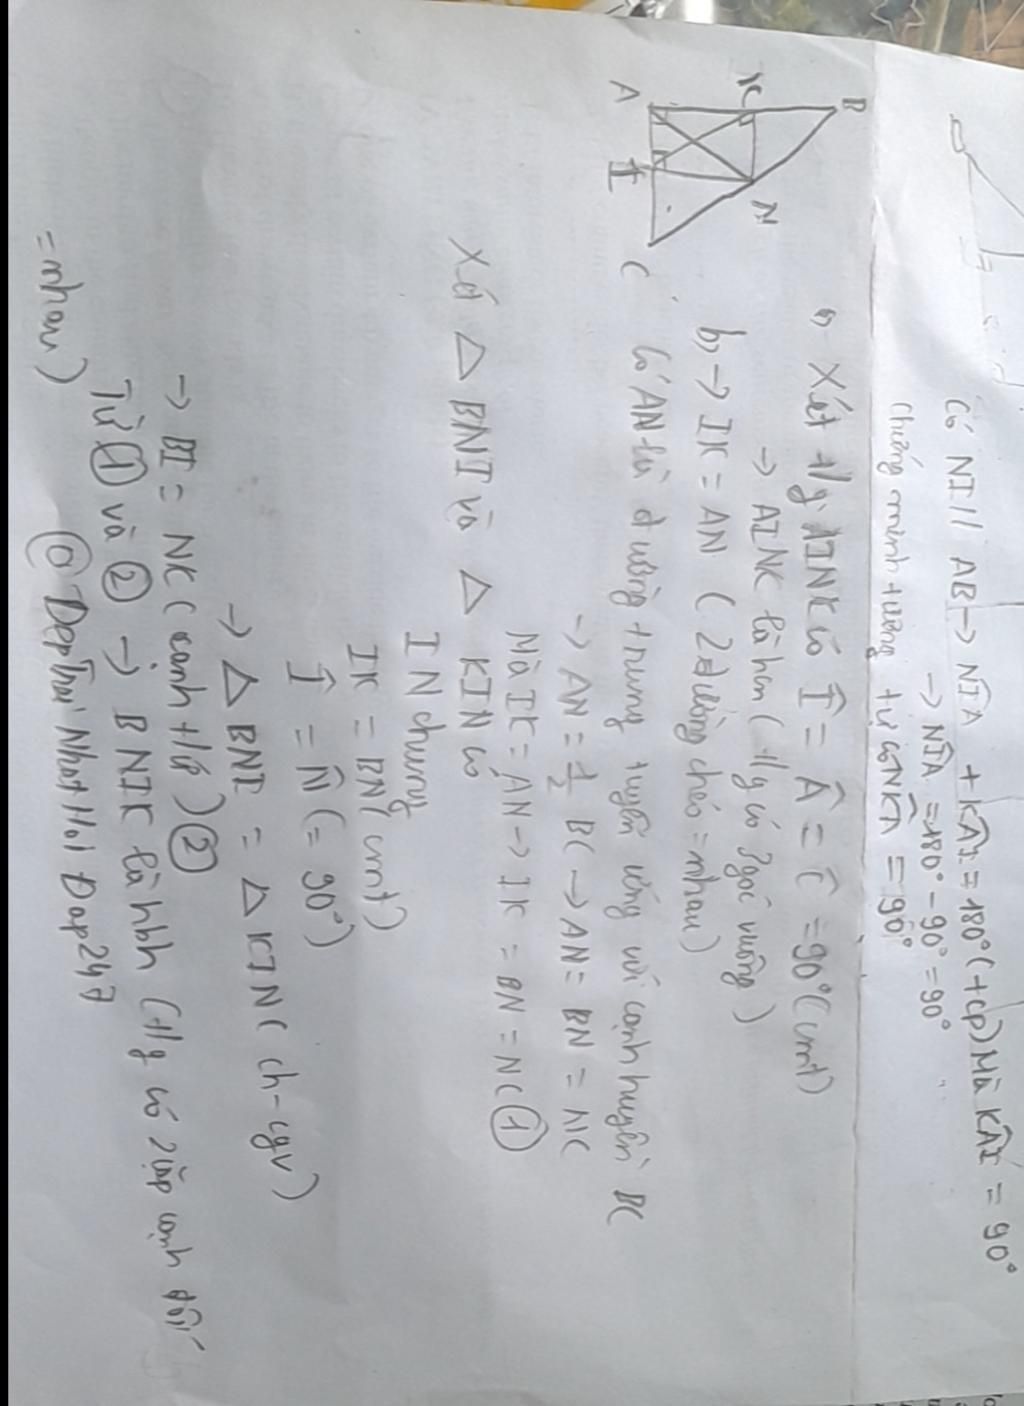 Có NI // AB → NIA + KAI = 180° (tcp) Mà KAI = 90°
→ NIA = 180° - 90° = 90°
chứng minh tương tự có NKA = 90°
B
K
N
A
I
C
Xét t/g AINK có Î = Â = K̂ = 90° (cmt)
→ AINK là hcn (t/g có 3 góc vuông)
b, → IK = AN (2 đường chéo = nhau)
Có AN là đường trung tuyến ứng với cạnh huyền BC
→ AN = 1/2 BC → AN = BN = NC
Mà IK = AN → IK = BN = NC ①
Xét △ BNI và △ KIN có
IN chung
IK = BN (cmt)
Î = N̂ (= 90°)
→ △ BNI = △ KIN (ch-cgv)
→ BI = NK (cạnh t/ứ) ②
Từ ① và ② → BNIK là hbh (t/g có 2 cặp cạnh đối
= nhau)
© DepTrai Nhat Hoi Dap247